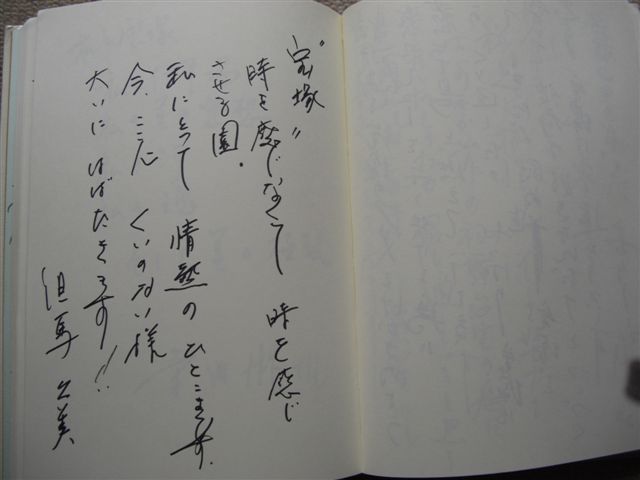 〝宝塚〟
時を感じなくて 時を感じ
させる園.
私にとって 情熱の ひとこまです.
今、ここに くいのない様
大いに はばたきます!!
但馬 久美